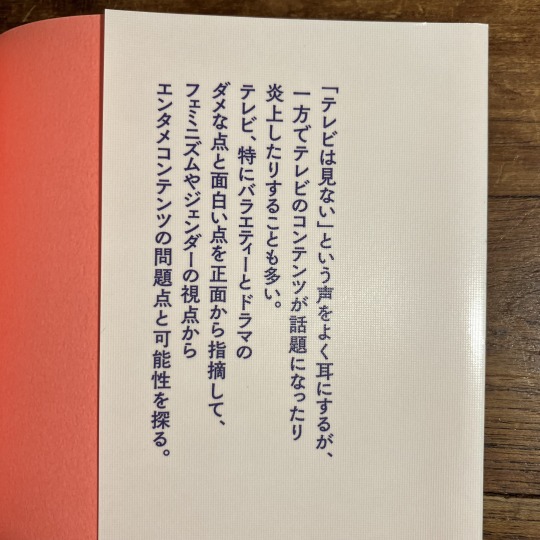 「テレビは見ない」という声をよく耳にするが、
一方でテレビのコンテンツが話題になったり
炎上したりすることも多い。
テレビ、特にバラエティーとドラマの
ダメな点と面白い点を正面から指摘して、
フェミニズムやジェンダーの視点から
エンタメコンテンツの問題点と可能性を探る。